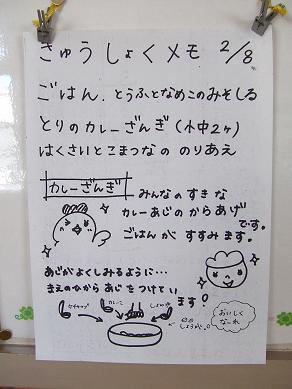 きゅうしょくメモ 2/8
ごはん、とうふとなめこのみそしる
とりのカレーざんぎ(小中2ヶ)
はくさいとこまつなの のりあえ
カレーざんぎ
みんなのすきな
カレーあじのからあげです。
ごはんがすすみます。
あじがよくしみるように…
まえのひからあじをつけています!
ケチャップ
カレーこ
しょうゆ
しょうが
おいしく
なーれ